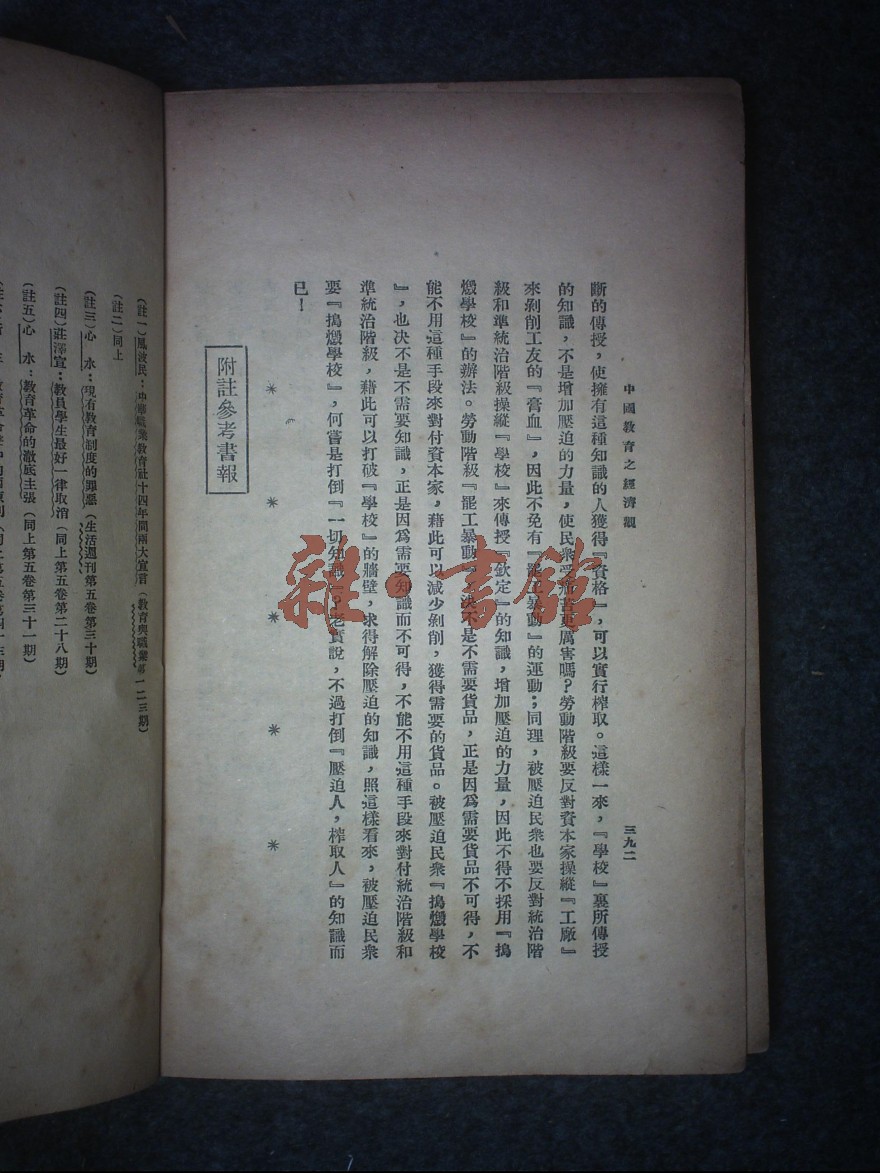 中國教育之經濟觀
三九二
斷的傳授，使擁有這種知識的人獲得『資格』，可以實行榨取。這樣一來，『學校』裏所傳授
的知識，不是增加壓迫的力量，使民衆受痛苦更厲害嗎？勞動階級要反對資本家操縱『工廠』
來剝削工友的『膏血』，因此不免有『罷工暴動』的運動；同理，被壓迫民衆也要反對統治階
級和準統治階級操縱『學校』來傳授『欽定』的知識，增加壓迫的力量，因此不得不採用『搗
燬學校』的辦法。勞動階級『罷工暴動』，決不是不需要貨品，正是因爲需要貨品不可得，不
能不用這種手段來對付資本家，藉此可以減少剝削，獲得需要的貨品。被壓迫民衆『搗燬學校
』，也決不是不需要知識，正是因爲需要知識而不可得，不能不用這種手段來對付統治階級和
準統治階級，藉此可以打破『學校』的牆壁，求得解除壓迫的知識，照這樣看來，被壓迫民衆
要『搗燬學校』，何嘗是打倒『一切知識』？老實說，不過打倒『壓迫人，榨取人』的知識而
已！
＊ ＊ ＊ ＊ ＊
附註參考書報
（註一）風波民：中華職業教育社十四年間兩大宣言（教育與職業第一二三期）
（註二）同上
（註三）心水：現有教育制度的罪惡（生活週刊第五卷第三十期）
（註四）莊澤宣：教員學生最好一律取消（同上第五卷第二十八期）
（註五）心水：教育革命的澈底主張（同上第五卷第三十一期）
雜·書館